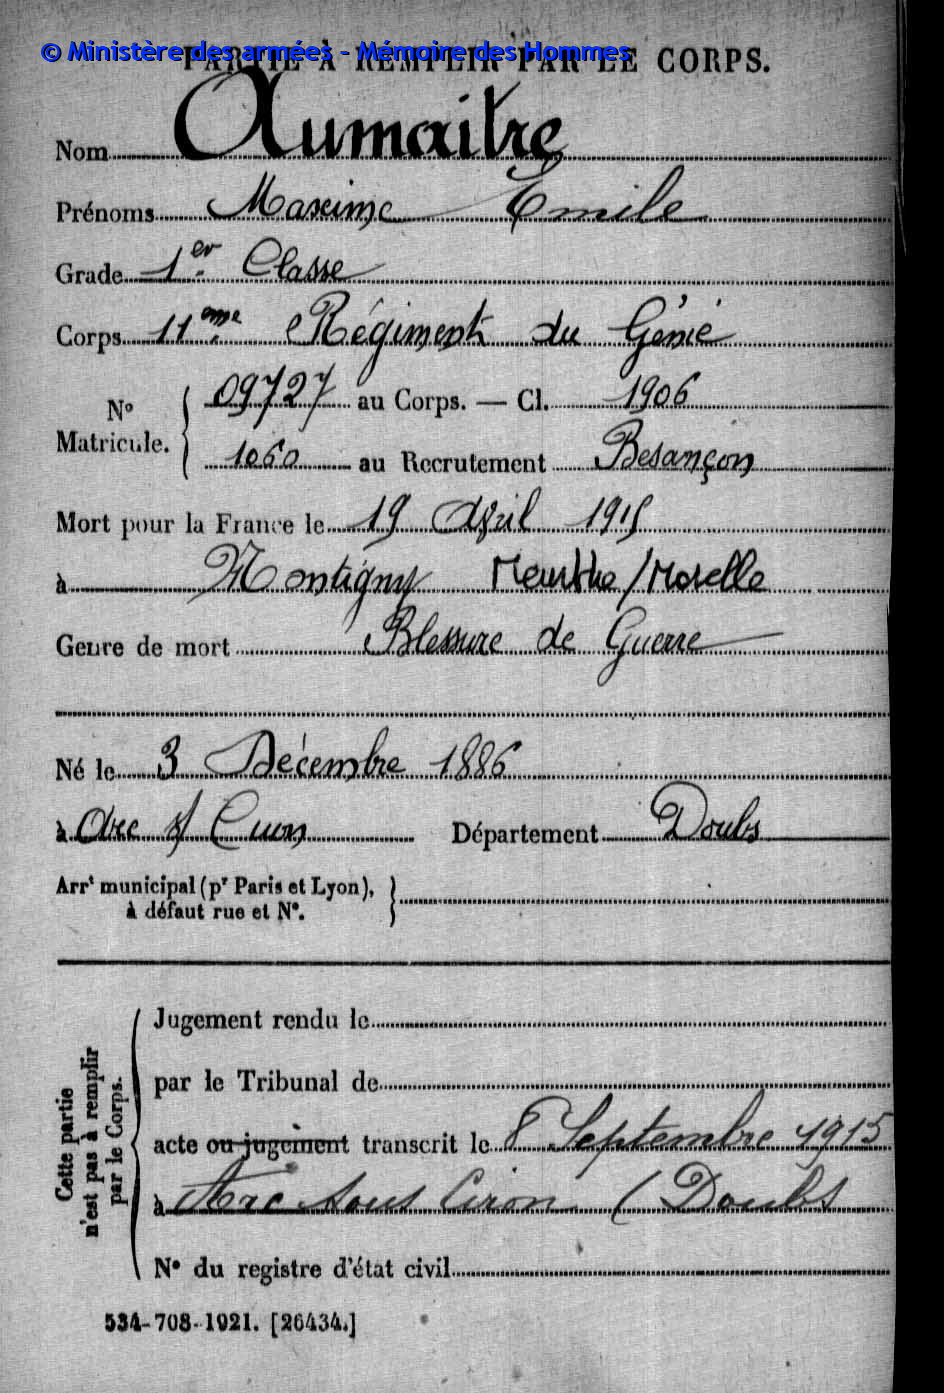 © Ministère des armées - Mémoire des Hommes
PARTIE À REMPLIR PAR LE CORPS.
Nom Aumaitre
Prénoms Maxime Emile
Grade 1er Classe
Corps 11eme Régiment du Génie
N° Matricule. { 09727 au Corps. — Cl. 1906
1060 au Recrutement Besançon
Mort pour la France le 19 Avril 1915
à Montigny Meurthe/Moselle
Genre de mort Blessure de Guerre
Né le 3 Décembre 1886
à Arc s/ Cicon Département Doubs
Arrt municipal (pr Paris et Lyon),
à défaut rue et N°.
Cette partie
n'est pas à remplir
par le Corps.
Jugement rendu le
par le Tribunal de
acte ou jugement transcrit le 8 Septembre 1915
à Arc sous Cicon (Doubs
N° du registre d'état civil
534-708-1921. [26434.]